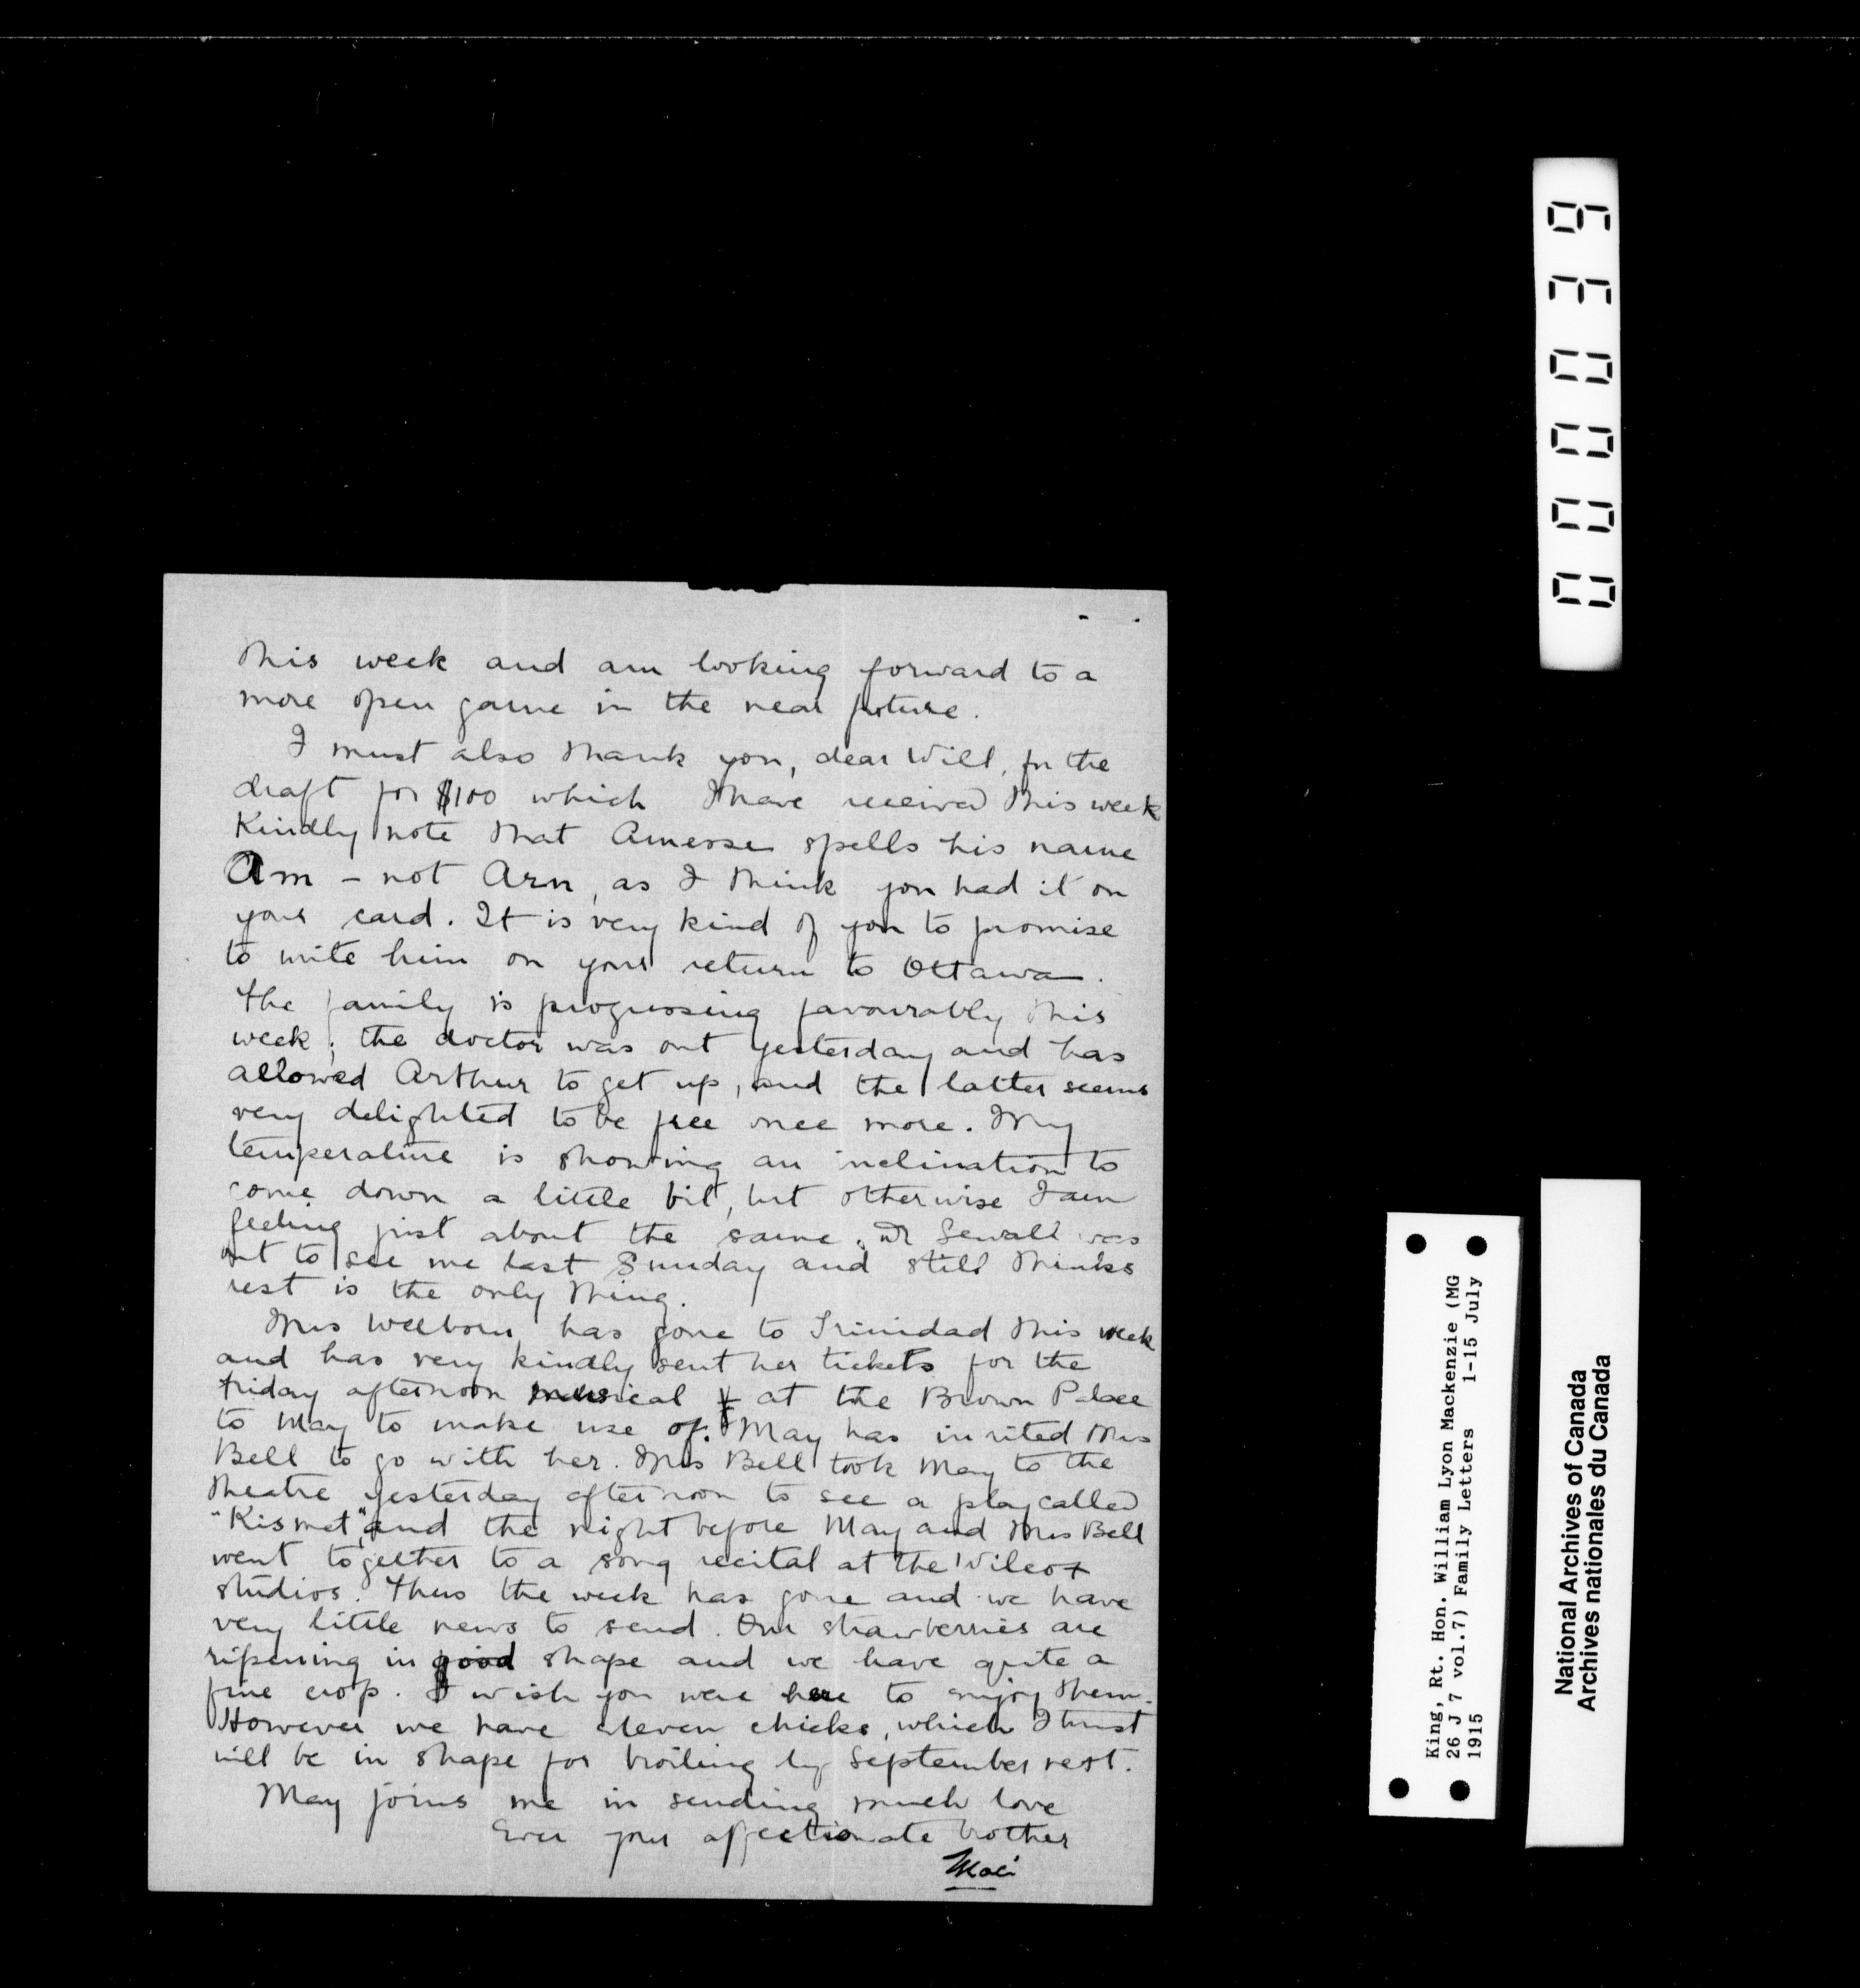 this week and am looking forward to a
more open game in the near future.
I must also thank you, dear Will, for the
draft for $100 which I have received this week
Kindly note that Amesse spells his name
Am – not Arn, as I think you had it on
your card. It is very kind of you to promise
to write him on your return to Ottawa.
The family is progressing favourably this
week; the doctor was out yesterday and has
allowed Arthur to get up, and the latter seems
very delighted to be free once more. My
temperature is showing an inclination to
come down a little bit, but otherwise I am
feeling just about the same. Dr Sewall was
out to see me last Sunday and still thinks
rest is the only thing.
Mrs Welborn has gone to Trinidad this week
and has very kindly sent her tickets for the
Friday afternoon musical at the Brown Palace
to May to make use of. May has invited Mrs
Bell to go with her. Mrs Bell took May to the
theatre yesterday afternoon to see a play called
"Kismet," and the night before May and Mrs Bell
went together to a song recital at the Wilcox
studios. Thus the week has gone and we have
very little news to send. Our strawberries are
ripening in good shape and we have quite a
fine crop. I wish you were here to enjoy them.
However we have eleven chicks, which I trust
will be in shape for broiling by September next.
May joins me in sending much love
Ever your affectionate brother
Max
000039
King, Rt. Hon. William Lyon Mackenzie (MG
26 J 7 vol.7) Family Letters 1-15 July
1915
National Archives of Canada
Archives nationales du Canada